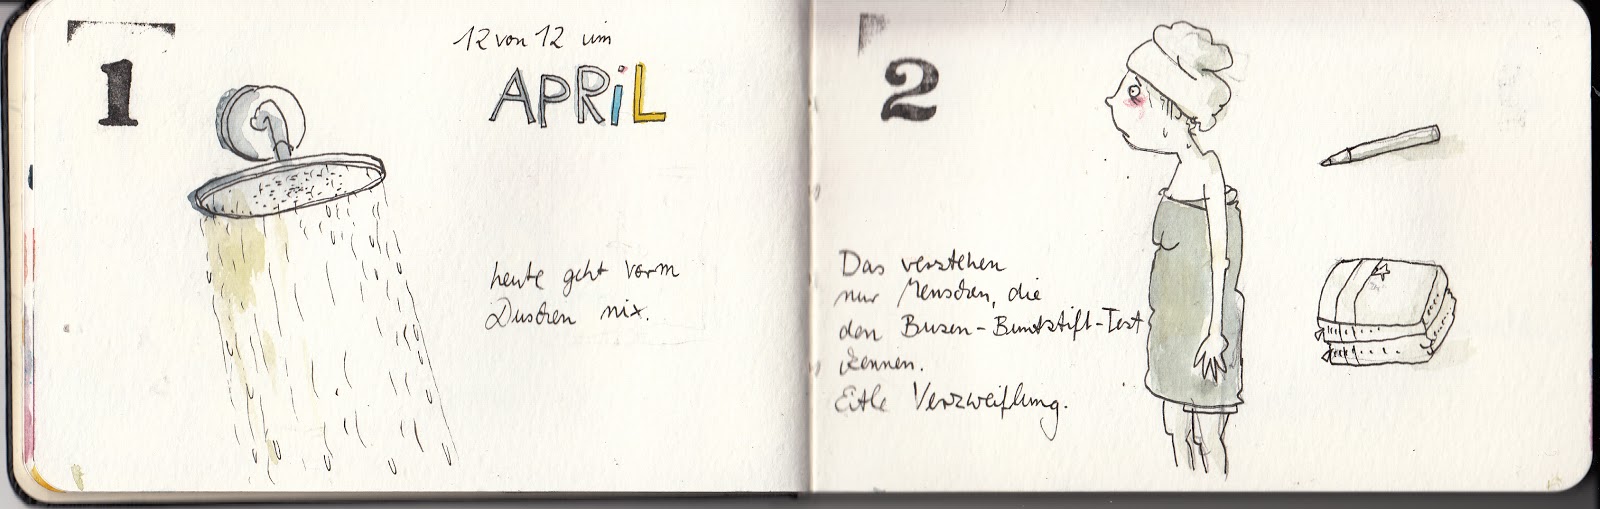 1
12 von 12 im
APRiL
heute geht vorm
Duschen nix.
2
Das verstehen
nur Menschen, die
den Busen-Buntstift-Test
kennen.
Eitle Verzweiflung.